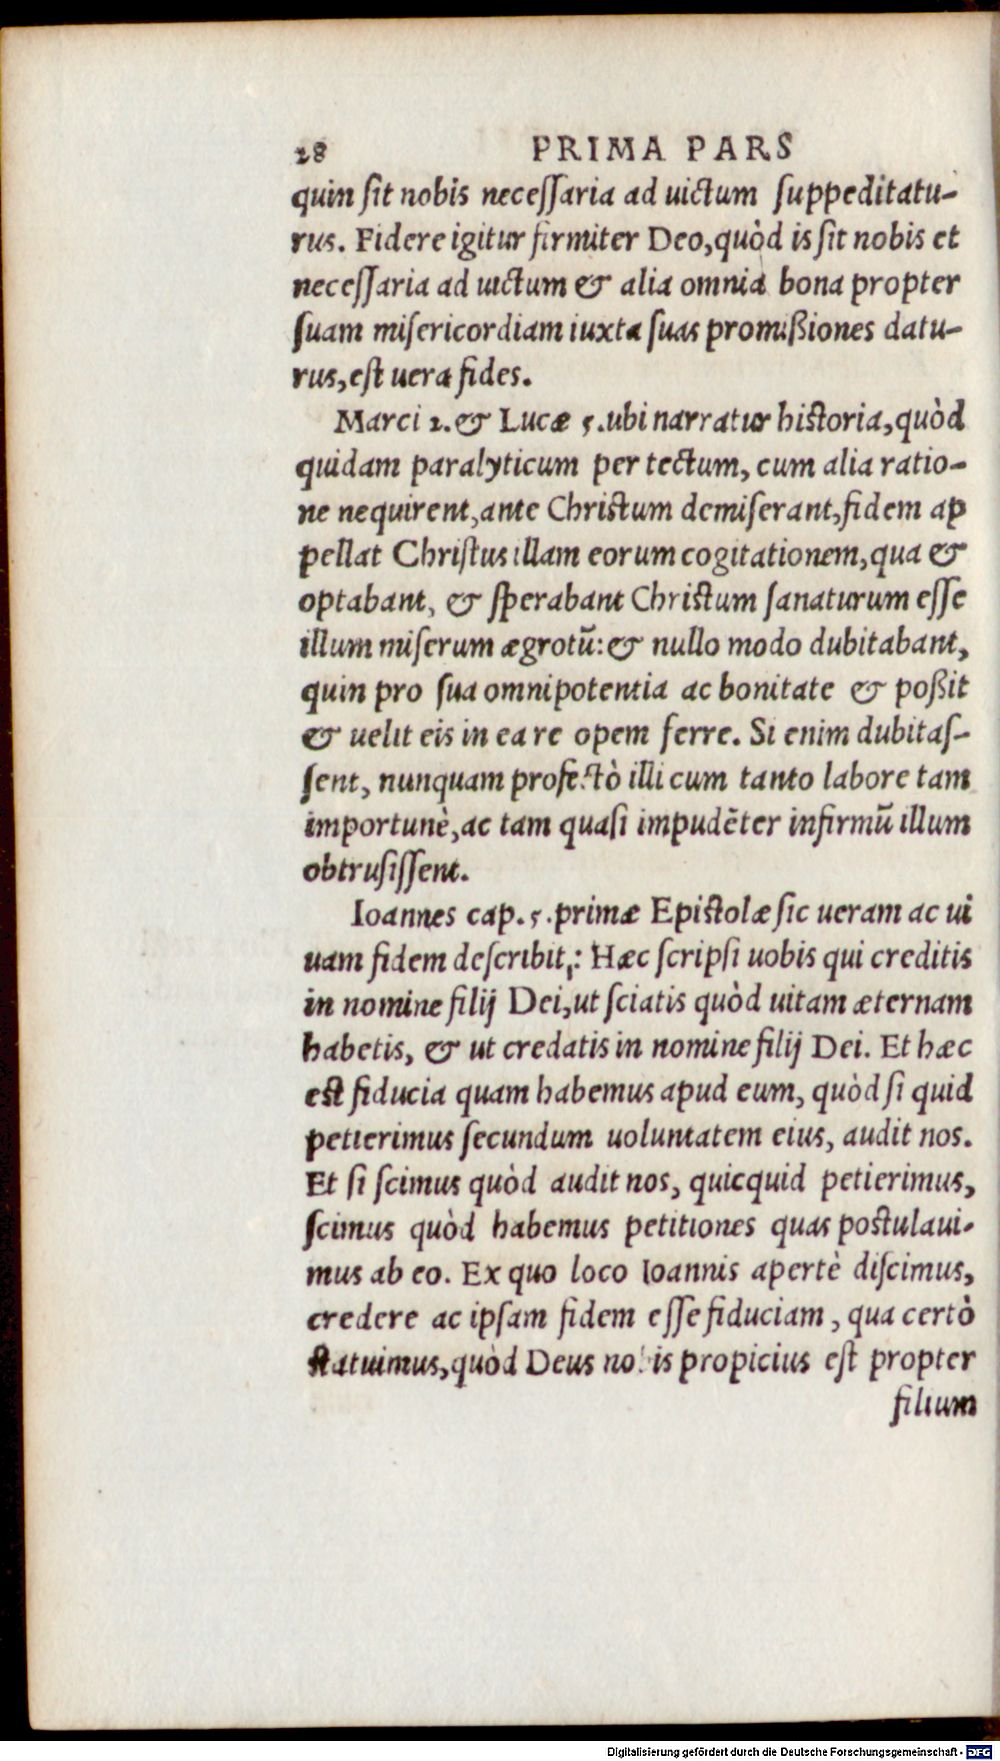 28 PRIMA PARS
quin ſit nobis neceſſaria ad uictum ſuppeditatu-
rus. Fidere igitur firmiter Deo, quòd is ſit nobis et
neceſſaria ad uictum & alia omnia bona propter
ſuam miſericordiam iuxta ſuas promißiones datu-
rus, eſt uera fides.
Marci 2. & Lucæ 5. ubi narratur hiſtoria, quòd
quidam paralyticum per tectum, cum alia ratio-
ne nequirent, ante Chriſtum demiſerant, fidem ap
pellat Chriſtus illam eorum cogitationem, qua &
optabant, & ſperabant Chriſtum ſanaturum eſſe
illum miſerum ægrotũ: & nullo modo dubitabant,
quin pro ſua omnipotentia ac bonitate & poßit
& uelit eis in ea re opem ferre. Si enim dubitaſ-
ſent, nunquam profectò illi cum tanto labore tam
importunè, ac tam quaſi impudẽter infirmũ illum
obtruſiſſent.
Ioannes cap. 5. primæ Epiſtolæ ſic ueram ac ui
uam fidem deſcribit: Hæc ſcripſi uobis qui creditis
in nomine filij Dei, ut ſciatis quòd uitam æternam
habetis, & ut credatis in nomine filij Dei. Et hæc
eſt fiducia quam habemus apud eum, quòd ſi quid
petierimus ſecundum uoluntatem eius, audit nos.
Et ſi ſcimus quòd audit nos, quicquid petierimus,
ſcimus quòd habemus petitiones quas poſtulaui-
mus ab eo. Ex quo loco Ioannis apertè diſcimus,
credere ac ipſam fidem eſſe fiduciam, qua certò
ſtatuimus, quòd Deus nobis propicius eſt propter
filium
Digitalisierung gefördert durch die Deutsche Forschungsgemeinschaft - DFG